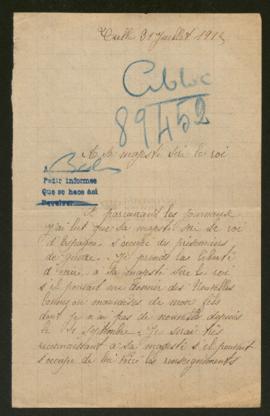 Tulle 31 Juillet 1915
Cibloc
89452
A sa majesté sire le roi
Pedir informes
Que se hace así
Devolver
En parcourant les journaux
j'ai lut que sa majesté sire le roi
d'Espagne s'occupe des prisonniers
de guerre. Je prends la liberté
d'écrire a sa majesté sire le roi
s'il pourait me donner des nouvelles
bonnes ou mauvaises de mon fils
dont je n'ai pas de nouvelle depuis
le Septembre. Je serai très
reconnaissant a sa majesté s'il pourait
s'occupe de les renseignements